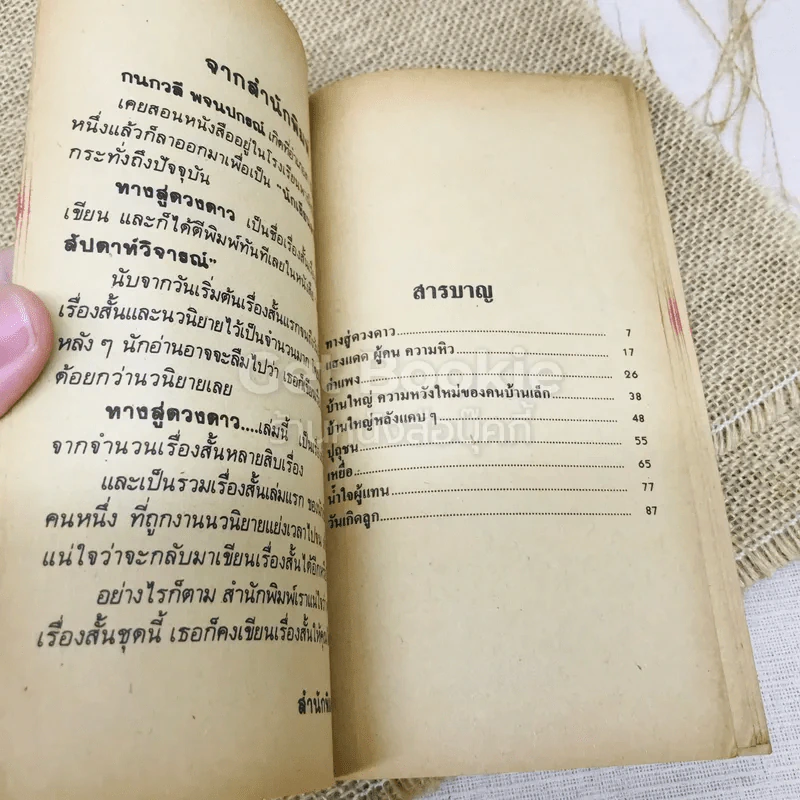 จากสำนักพิมพ์
กนกวลี พจนปกรณ์ เกิดที่อำเภอ
เคยสอนหนังสืออยู่ในโรงเรียน
หนึ่งแล้วก็ลาออกมาเพื่อเป็น "นักเขียน
กระทั่งถึงปัจจุบัน
ทางสู่ดวงดาว เป็นชื่อเรื่องสั้น
เขียน และก็ได้ตีพิมพ์ทันทีเลยในหนังสือ
สัปดาห์วิจารณ์"
นับจากวันเริ่มต้นเรื่องสั้นแรก
เรื่องสั้นและนวนิยายไว้เป็นจำนวนมาก
หลัง ๆ นักอ่านอาจจะลืมไปว่า เธอก็เขียน
ด้อยกว่านวนิยายเลย
ทางสู่ดวงดาว....เล่มนี้ เป็น
จากจำนวนเรื่องสั้นหลายสิบเรื่อง
และเป็นรวมเรื่องสั้นเล่มแรก ของ
คนหนึ่ง ที่ถูกงานนวนิยายแย่งเวลาไป
แน่ใจว่าจะกลับมาเขียนเรื่องสั้นได้อีก
อย่างไรก็ตาม สำนักพิมพ์เราแน่ใจว่า
เรื่องสั้นชุดนี้ เธอก็คงเขียนเรื่องสั้นให้
สำนักพิมพ์
สารบาญ
ทางสู่ดวงดาว 7
แสงแดด ผู้คน ความหิว 17
กำแพง 26
บ้านใหญ่ ความหวังใหม่ของคนบ้านเล็ก 38
บ้านใหญ่หลังแคบ ๆ 48
ปุถุชน 55
เหยื่อ 65
น้ำใจผู้แทน 77
วันเกิดลูก 87
Get Bookie
ร้านหนังสือบุ๊คกี้